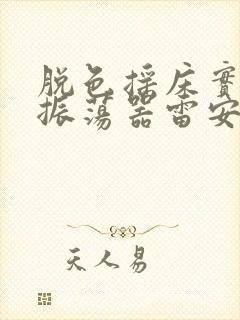 脱色摇床實
振荡器雷安
天人易